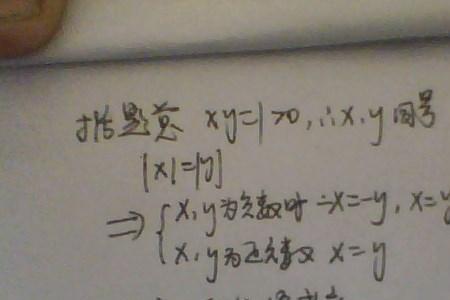 据题意 xy=1>0,∴x,y同号
|x|=|y|
⇒{x,y为负数时 -x=-y,x=y
x,y为正数 x=y